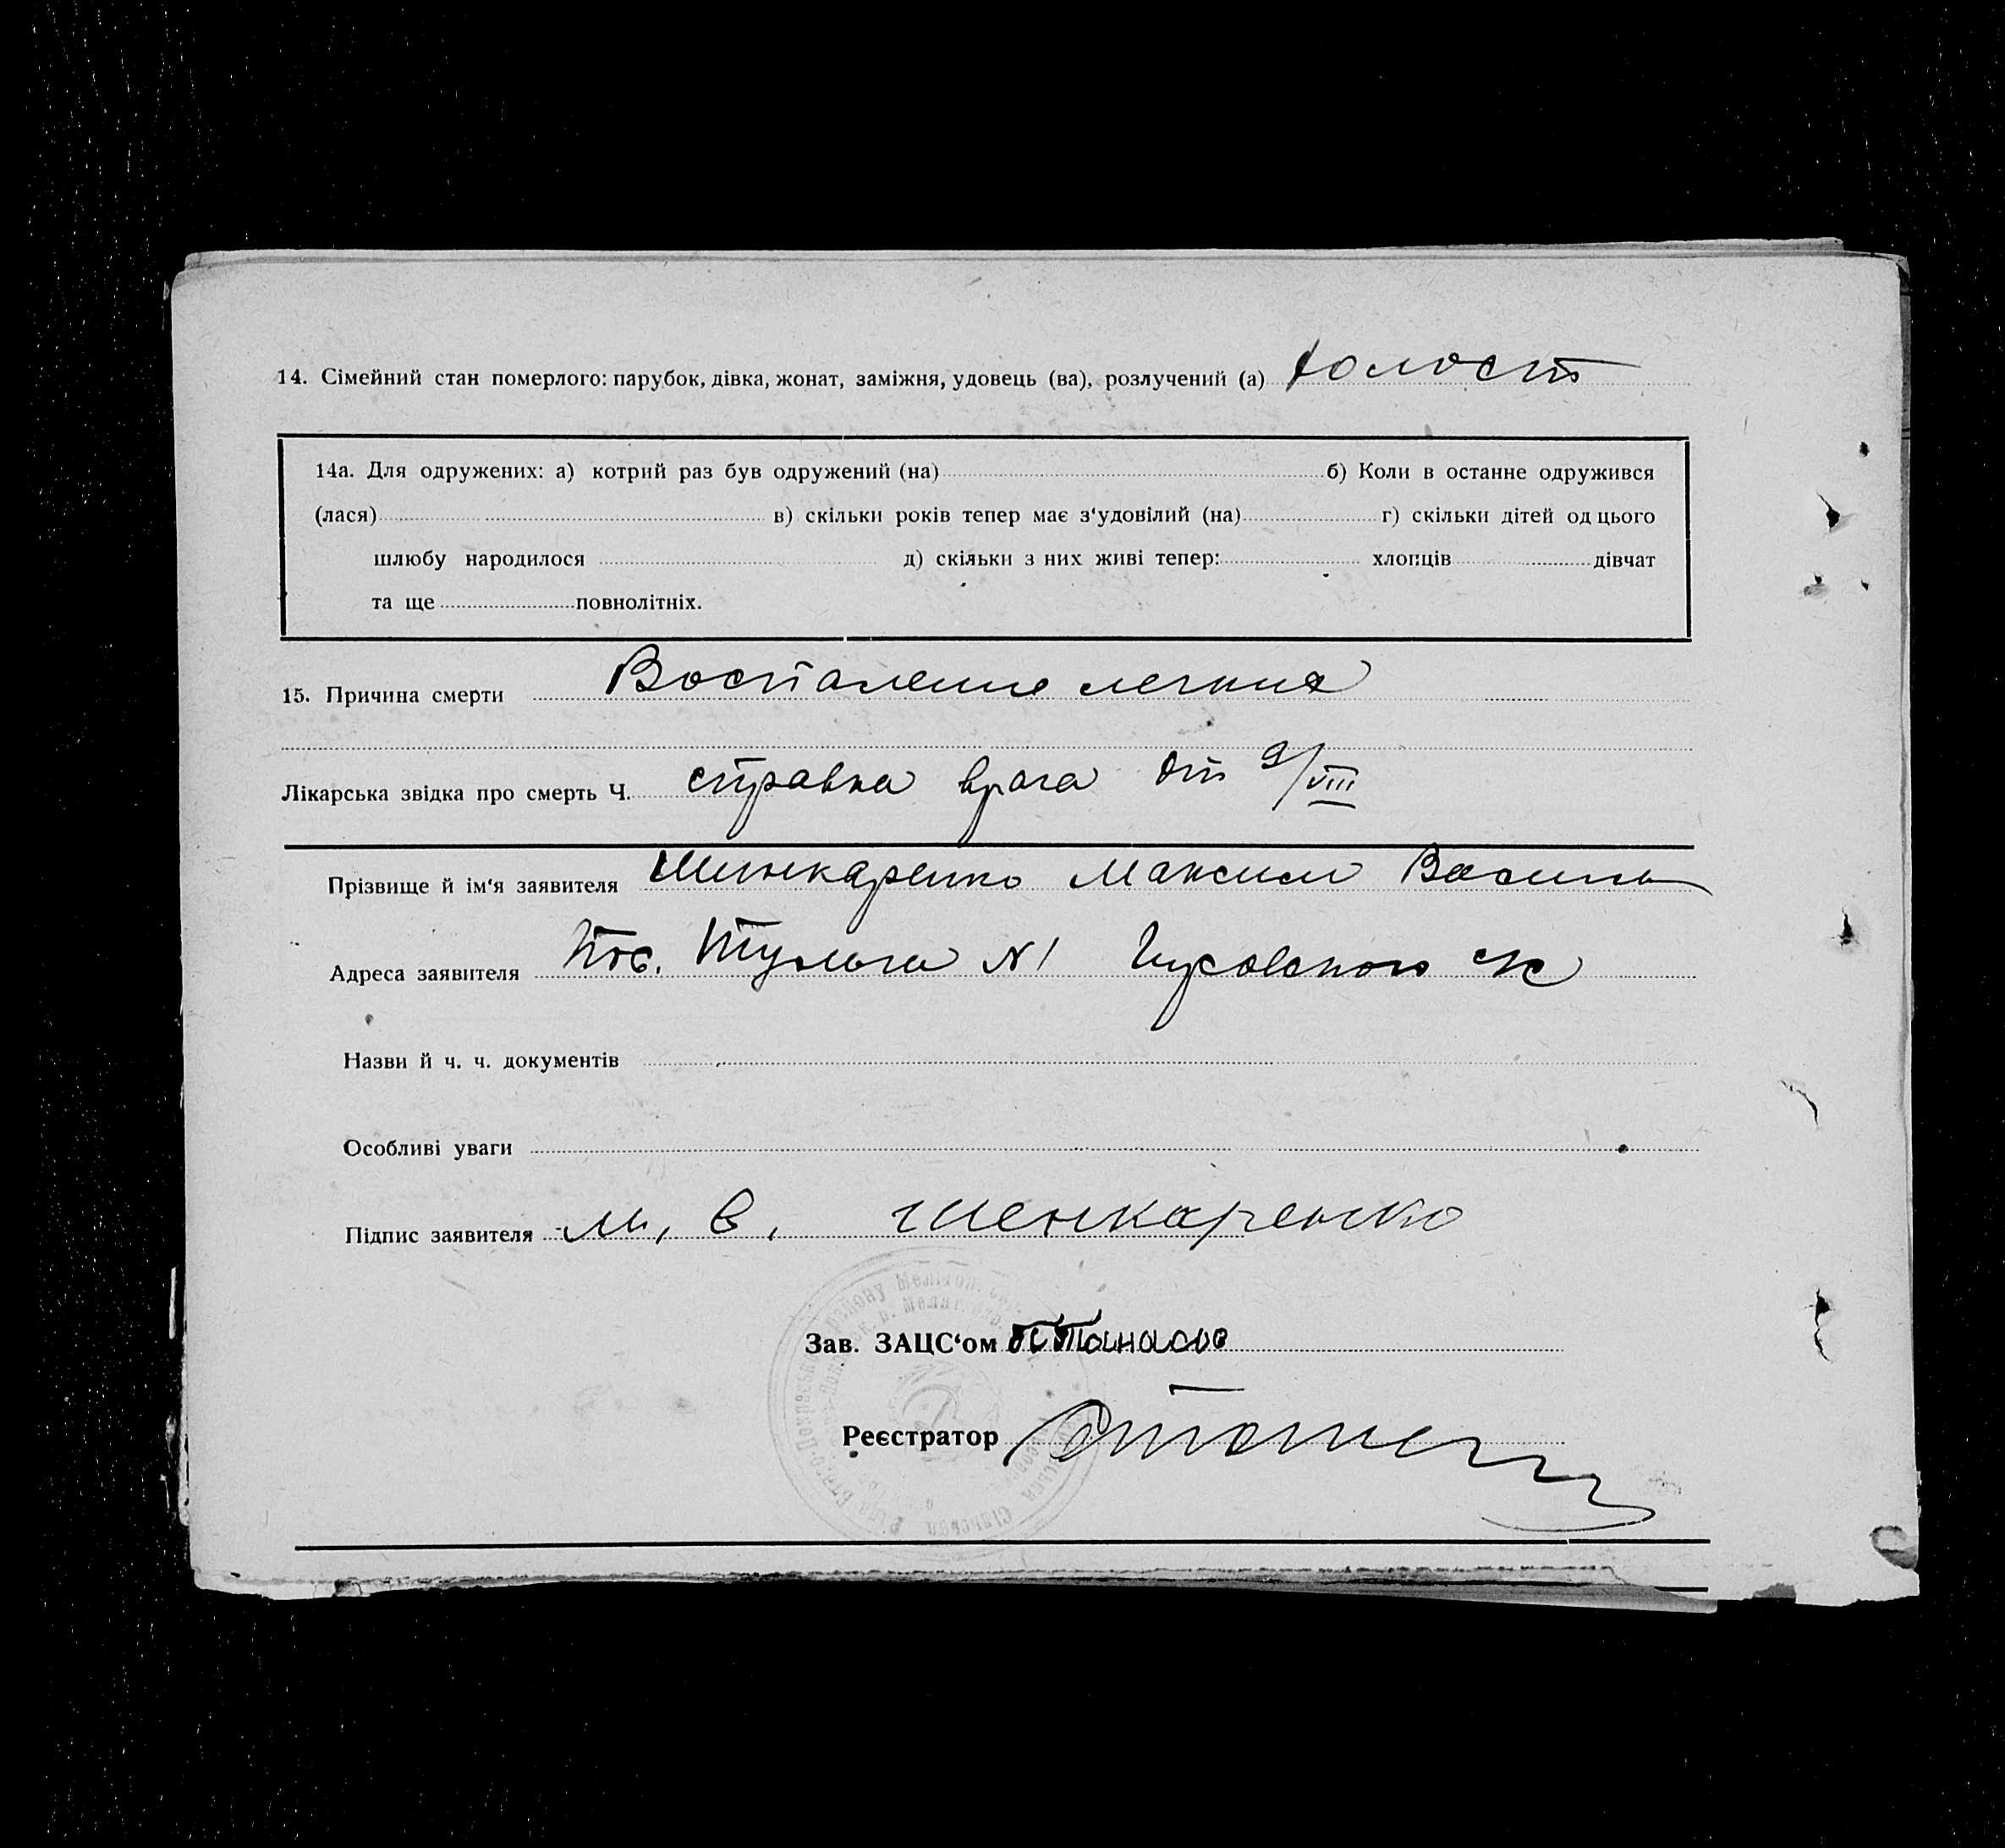 14. Сімейний стан померлого: парубок, дівка, жонат, заміжня, удовець (ва), розлучений (а) холост
14а. Для одружених: а) котрий раз був одружений (на) б) Коли в останне одружився
(лася) в) скільки років тепер має з'удовілий (на) г) скільки дітей од цього
шлюбу народилося д) скільки з них живі тепер: хлопців дівчат
та ще повнолітніх.
15. Причина смерти Воспаление легких
Лікарська звідка про смерть Ч. справка врача от 9/VIII
Прізвище й ім'я заявителя Шинкаренко Максим Василь
Адреса заявителя Пос. N1 с/с
Назви й ч. ч. документів
Особливі уваги
Підпис заявителя М. В. Шенкаренко
Зав. ЗАЦС'ом
Реєстратор